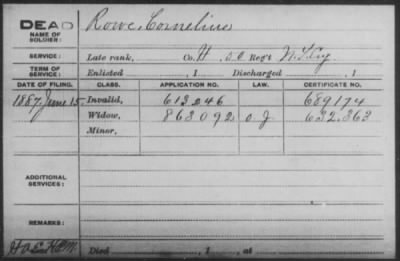 DEAD
NAME OF SOLDIER: Rowe, Cornelius
SERVICE: Late rank, Co. H, 50 Reg't N.Y. Eng
TERM OF SERVICE: Enlisted , 1 Discharged , 1
DATE OF FILING. CLASS. APPLICATION NO. LAW. CERTIFICATE NO.
1887, June 15 Invalid, 613246 689174
Widow, 863092 O J 632.363
Minor,
ADDITIONAL SERVICES:
REMARKS:
Died , 1 , at